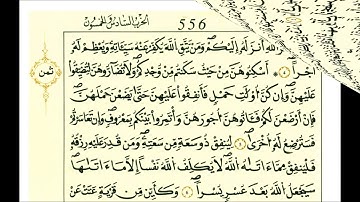 الحزب السادس والخمسون
556
ثمن
اللَّهِ أَنزَلَهُ إِلَيْكُمْ وَمَن يَتَّقِ اللَّهَ يُكَفِّرْ عَنْهُ سَيِّئَاتِهِ وَيُعْظِمْ لَهُ
أَجْرًا ٥ أَسْكِنُوهُنَّ مِنْ حَيْثُ سَكَنتُم مِّن وُجْدِكُمْ وَلَا تُضَارُّوهُنَّ لِتُضَيِّقُوا
عَلَيْهِنَّ وَإِن كُنَّ أُوْلَاتِ حَمْلٍ فَأَنفِقُوا عَلَيْهِنَّ حَتَّى يَضَعْنَ حَمْلَهُنَّ
فَإِنْ أَرْضَعْنَ لَكُمْ فَـَٔاتُوهُنَّ أُجُورَهُنَّ وَأْتَمِرُوا بَيْنَكُم بِمَعْرُوفٍ وَإِن تَعَاسَرْتُمْ
فَسَتُرْضِعُ لَهُ أُخْرَى ٦ لِيُنفِقْ ذُو سَعَةٍ مِّن سَعَتِهِ وَمَن قُدِرَ عَلَيْهِ رِزْقُهُ
فَلْيُنفِقْ مِمَّا ءَاتَاهُ اللَّهُ لَا يُكَلِّفُ اللَّهُ نَفْسًا إِلَّا مَا ءَاتَاهَا
سَيَجْعَلُ اللَّهُ بَعْدَ عُسْرٍ يُسْرًا ٧ وَكَأَيِّن مِّن قَرْيَةٍ عَتَتْ عَنْ